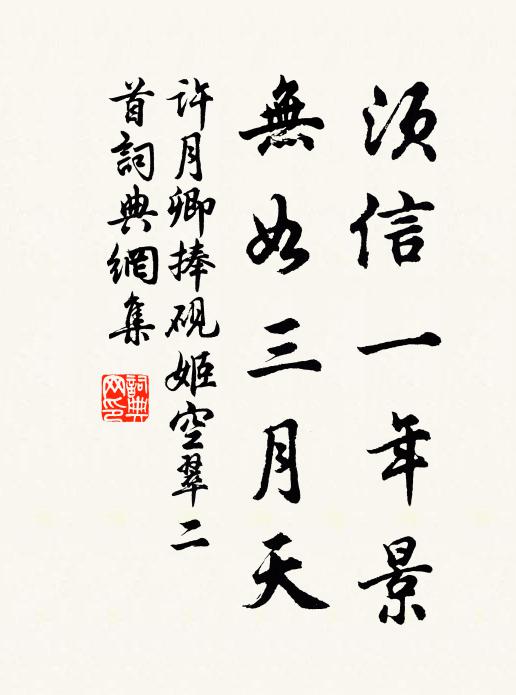 須信一年景
無如三月天
許月卿捧硯姬空翠二
首詞典網集
詞典
网印